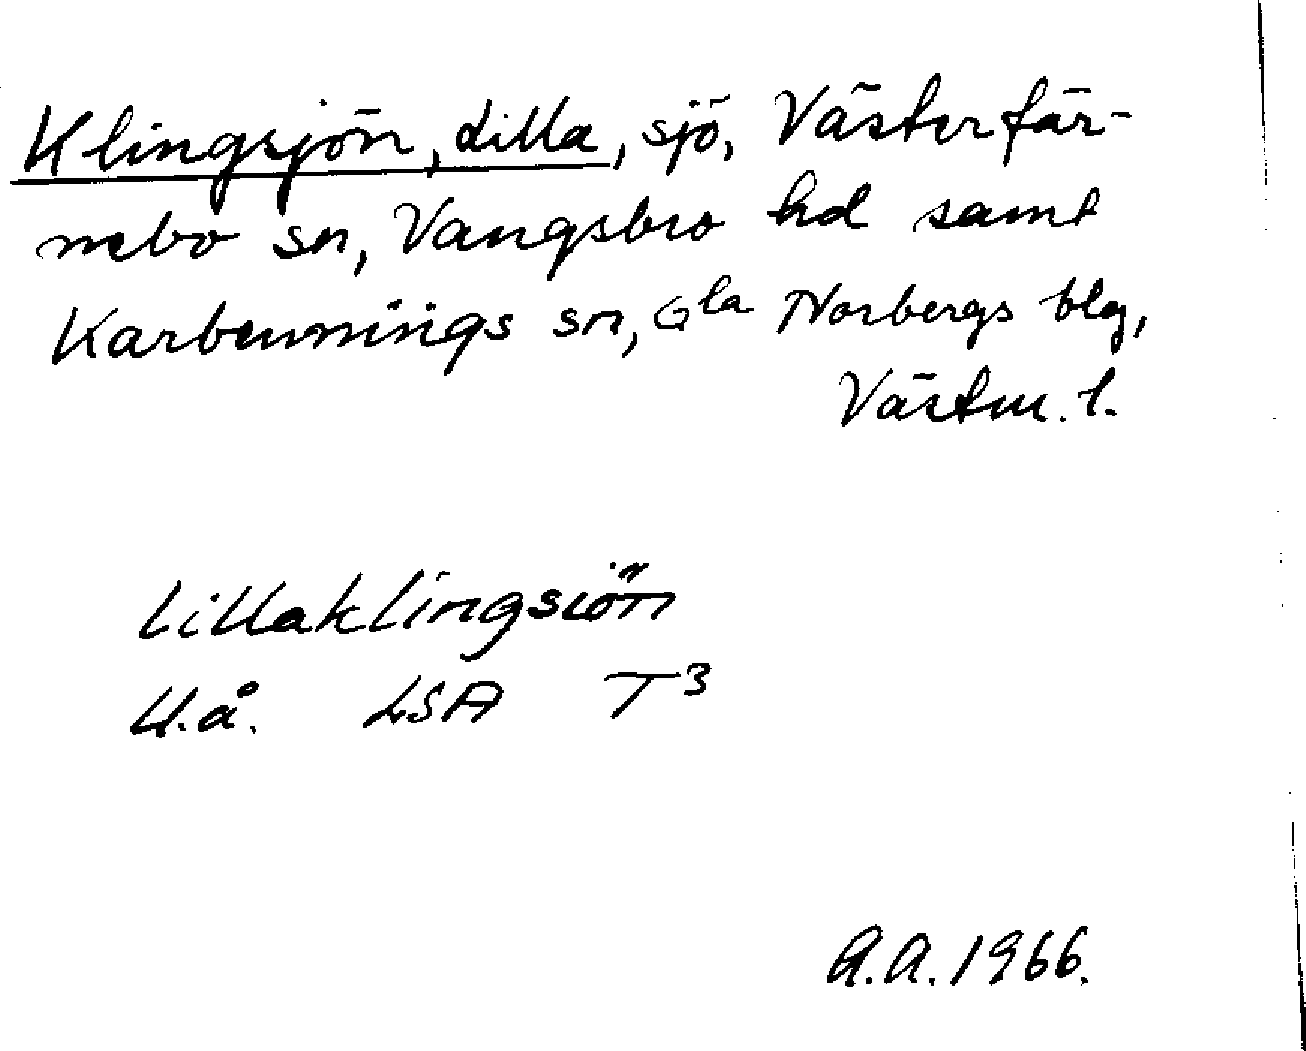 Klingsjön, Lilla, sjö, Västerfär-
nebo sn, Vangsbro hd samt
Karbennings sn, Gla Norbergs blg,
Västm. l.
Lillaklingsiön
U.å. LSA T3
A.A. 1966.